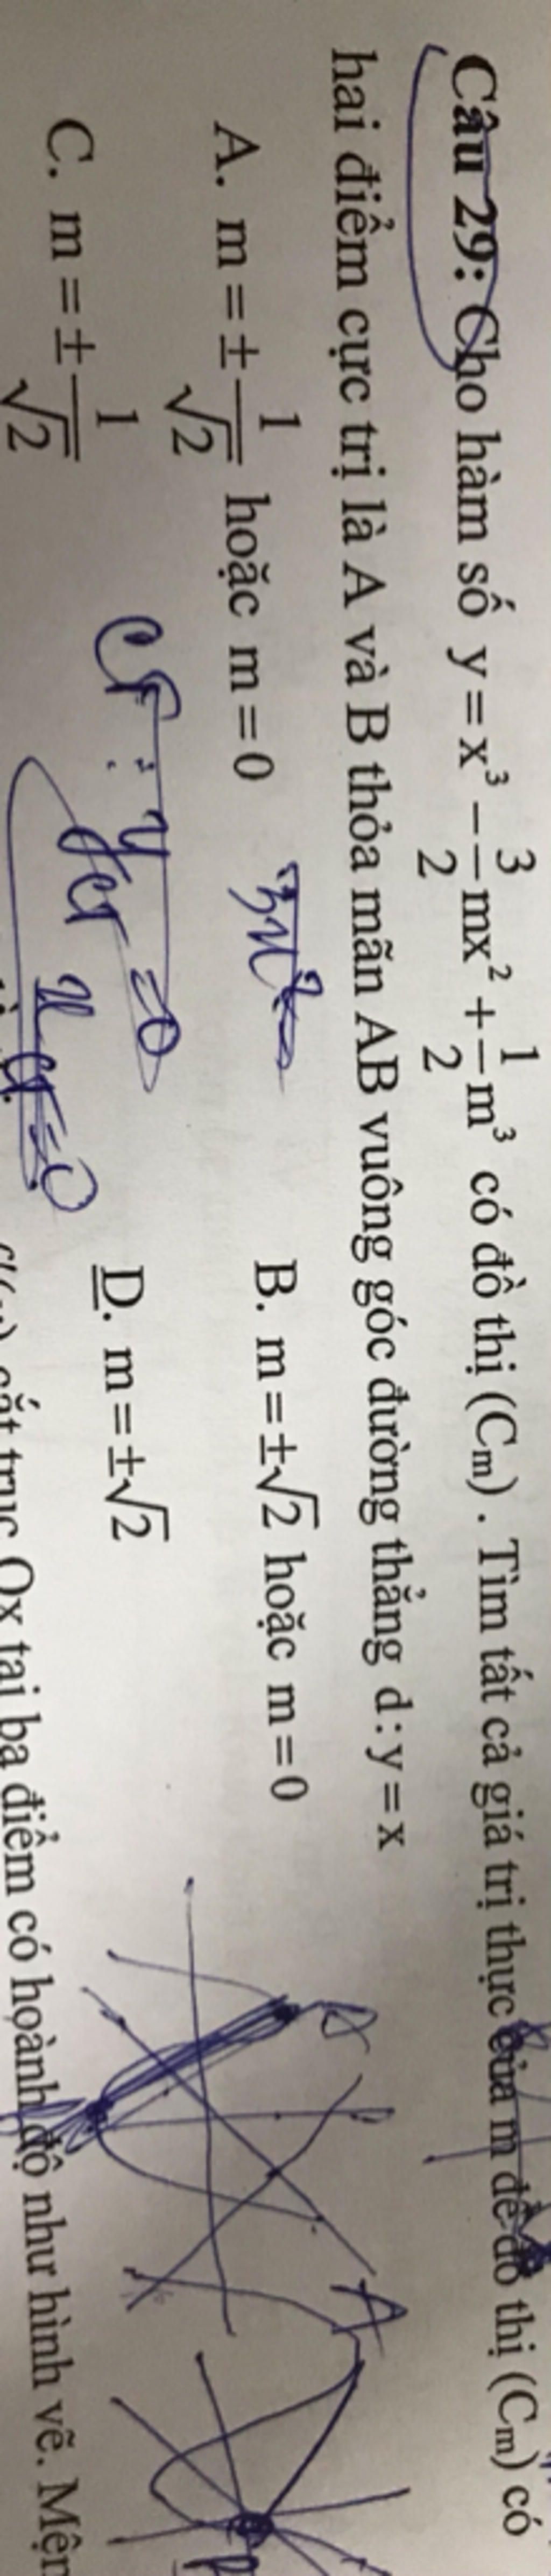 Câu 29: Cho hàm số y = x³ − 3/2 mx² + 1/2 m³ có đồ thị (Cₘ). Tìm tất cả giá trị thực của m để đồ thị (Cₘ) có
hai điểm cực trị là A và B thỏa mãn AB vuông góc đường thẳng d : y = x
A. m = ± 1/√2 hoặc m = 0
B. m = ±√2 hoặc m = 0
C. m = ± 1/√2
D. m = ±√2
cắt trục Ox tại ba điểm có hoành độ như hình vẽ. Mện